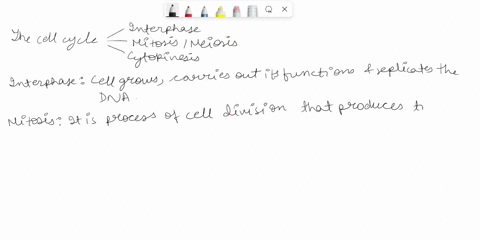 The cell cycle
Interphase
Mitosis / Meiosis
Cytokinesis
Interphase : Cell grows, carries out its functions & replicates the
DNA.
Mitosis : It is process of cell division that produces t